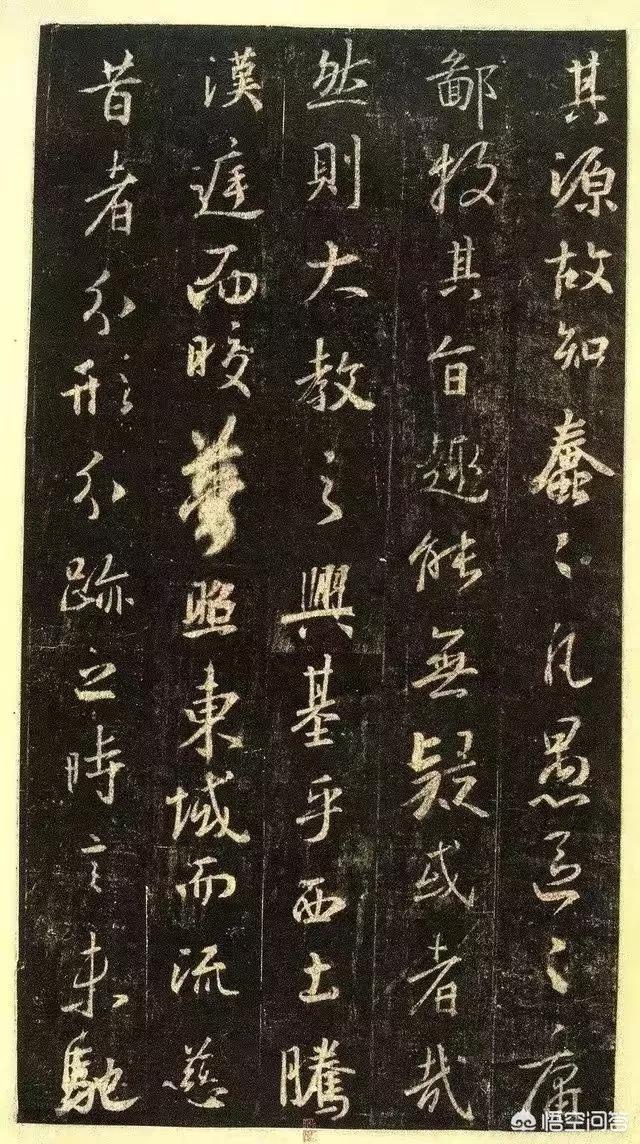 其源故知蠢々凡愚區々庸
鄙投其旨趣能無疑或者哉
然則大教之興基乎西土騰
漢庭而晈夢照東域而流慈
昔者分形分跡之時言未馳
悟空问答